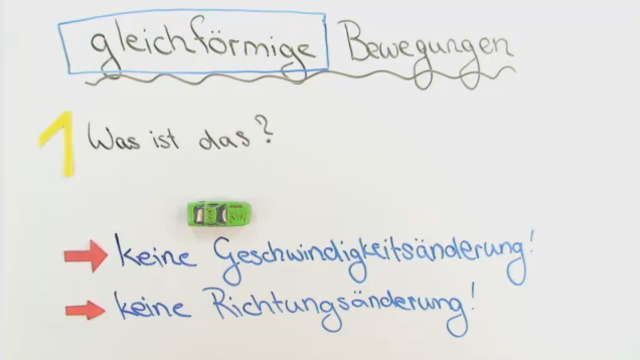 gleichförmige Bewegungen
1 Was ist das?
keine Geschwindigkeitsänderung!
keine Richtungsänderung!